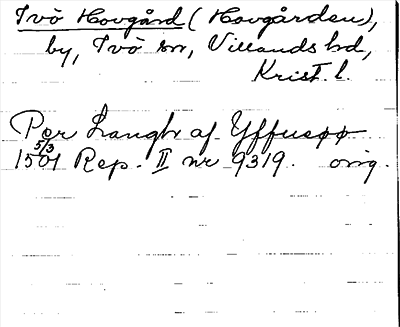 Ivö Hovgård (Hovgården),
by, Ivö sn, Villands hd,
Krist. l.
Per Langh af Yffueøø
5/3
1501 Rep. II nr 9319. orig.